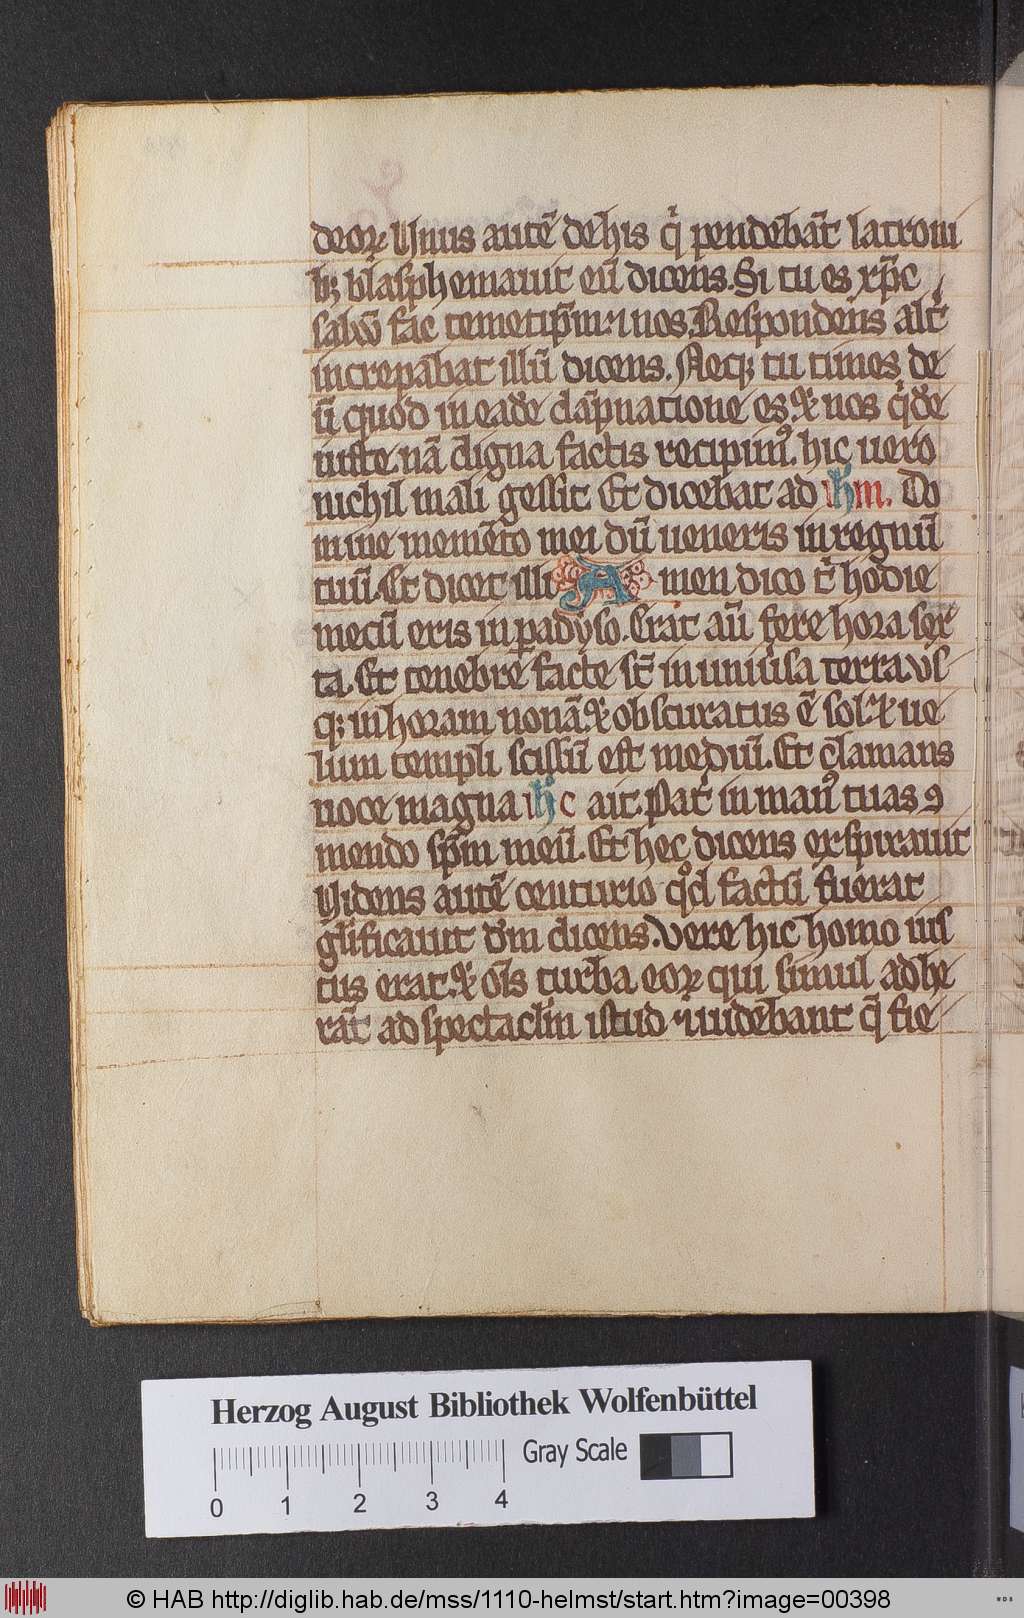 deoꝝ Vnus autē de his q̇ pendebāt latroni
bꝫ blasphemauit eū dicens. Si tu es xp̄c
saluū fac temetip̄m. ⁊ nos. Respondens alt̉
increpabat illū dicens. Neqꝫ tu times de
ū quod in eadē dāpnatione es. ⁊ nos q̇dē
iuste. nā digna factis recipimꝰ. hic uero
nichil mali gessit. Et dicebat ad ih̄m. Do
mine memēto mei dū ueneris in regnū
tuū. Et dicit illi Amen dico t̉ hodie
mecū eris in ꝑadyso. Erat aū fere hora sex
ta. Et tenebre facte st̄ in uniủsa terra. vs
qꝫ in horam nonā. ⁊ obscuratus ē sol. ⁊ ue
lum templi scissū est mediū. Et clamans
uoce magna ih̄c ait. Pat̉ in manꝰ tuas ꝯ
mendo sp̄m meū. Et hec dicens exspirauit
Videns autē centurio qd̉ factū fuerat
gl̄ificauit dm̄ dicens. Vere hic homo ius
tus erat. ⁊ om̄s turba eoꝝ qui simul adhe
rāt ad spectacl̄m istud ⁊ uidebant q̄ fie
Herzog August Bibliothek Wolfenbüttel
Gray Scale
0 1 2 3 4
© HAB http://diglib.hab.de/mss/1110-helmst/start.htm?image=00398